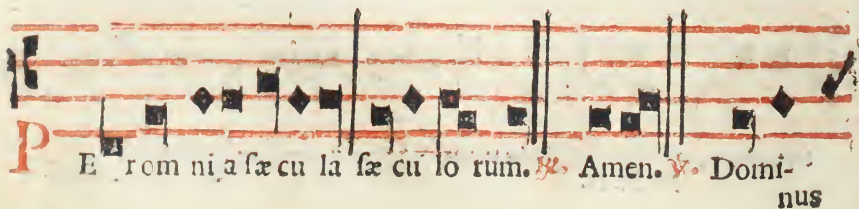 PE rom ni a sæ cu la sæ cu lo rum. ℟. Amen. ℣. Domi-
nus